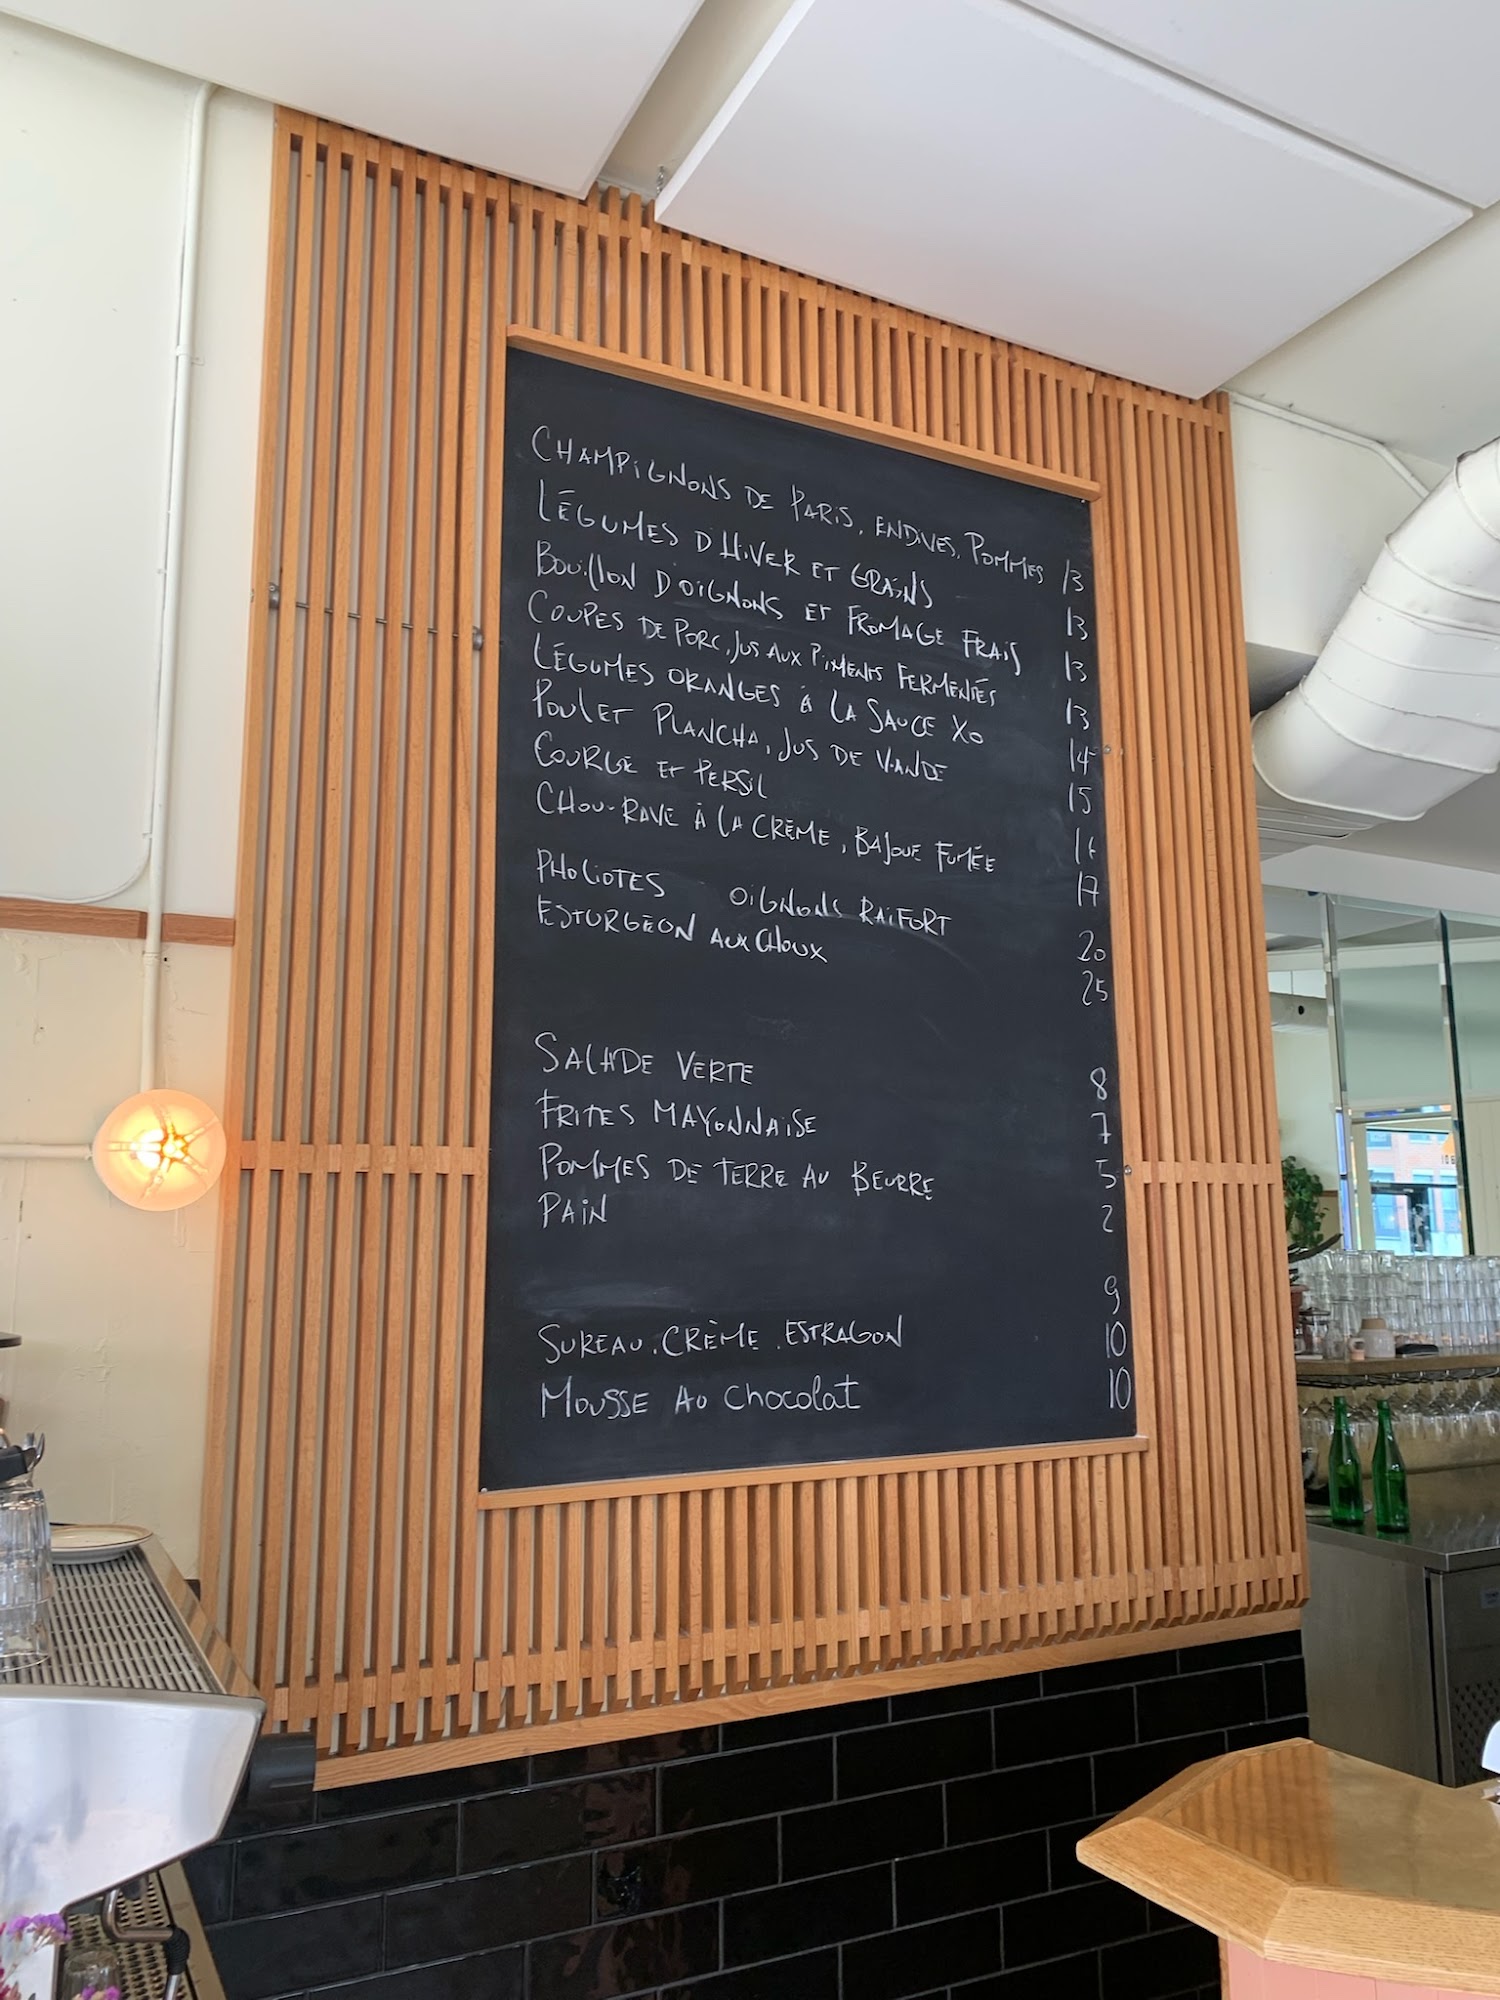 CHAMPIGNONS DE PARIS, ENDIVES, POMMES 13
LÉGUMES D'HIVER ET GRAINS 13
BOUILLON D'OIGNONS ET FROMAGE FRAIS 13
COUPES DE PORC, JUS AUX PIMENTS FERMENTÉS 13
LÉGUMES ORANGES À LA SAUCE XO 14
POULET PLANCHA, JUS DE VIANDE 15
COURGE ET PERSIL
CHOU-RAVE À LA CRÈME, BAJOUE FUMÉE 17
PHOLIOTES OIGNONS RAIFORT 20
ESTURGEON AUX CHOUX 25
SALADE VERTE 8
FRITES MAYONNAISE 7
POMMES DE TERRE AU BEURRE 5
PAIN 2
9
SUREAU. CRÈME. ESTRAGON 10
MOUSSE AU Chocolat 10